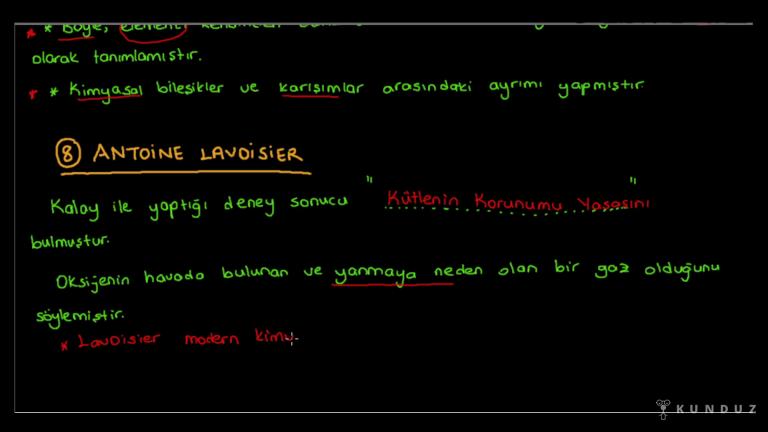 * * Boyle, elementi
olarak tanımlamıştır.
* * Kimyasal bileşikler ve karışımlar arasındaki ayrımı yapmıştır.
8 ANTOINE LAVOISIER
Kalay ile yaptığı deney sonucu " Kütlenin Korunumu Yasasını "
bulmuştur.
Oksijenin havada bulunan ve yanmaya neden olan bir gaz olduğunu
söylemiştir.
* Lavoisier modern kimy
KUNDUZ